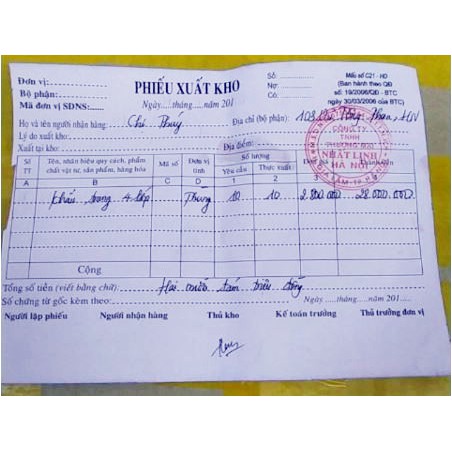 Đơn vị:
Bộ phận:
Mã đơn vị SDNS:
PHIẾU XUẤT KHO
Ngày.....tháng.....năm 201
Số:
Nợ:
Có:
Mẫu số C21 - HD
(Ban hành theo QĐ
số: 19/2006/QĐ - BTC
ngày 30/03/2006 của BTC)
Họ và tên người nhận hàng: Chị Thúy Địa chỉ (bộ phận): Phan, HN
Lý do xuất kho:
Xuất tại kho: Địa điểm:
CÔNG TY
TNHH
NHẤT LINH
HÀ NỘI
Số TT
Tên, nhãn hiệu quy cách, phẩm chất vật tư, sản phẩm, hàng hóa
Mã số
Đơn vị tính
Số lượng
Yêu cầu
Thực xuất
A B C D 1 2
Khẩu trang 4 lớp Thùng 10 10 2.800.000 28.000.000
Cộng
Tổng số tiền (viết bằng chữ): Hai mươi tám triệu đồng
Số chứng từ gốc kèm theo: Ngày.....tháng.....năm 201....
Người lập phiếu Người nhận hàng Thủ kho Kế toán trưởng Thủ trưởng đơn vị